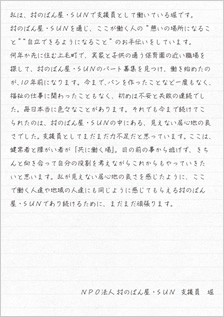 私は、村のぱん屋・SUNで支援員として働いている堀です。
村のぱん屋・SUNを通じ、ここが働く人の"憩いの場所になるこ
と""自立できるようになること"のお手伝いをしています。
何年か先に住む上毛町で、実家と子供の通う保育園の近い職場を
探して、村のぱん屋・SUNのパート募集を見つけ、働き始めたの
が、10年前になります。今まで、パンを作ったことなど一度もなく、
福祉の仕事に関わったこともなく、初めは不安と失敗の連続でし
た。毎日本当に色々なことがあります。それでも今まで続けてこ
られたのは、村のぱん屋・SUNの中にある、見えない居心地の良
さでした。支援員としてまだまだ力不足だと思っています。ここは、
健常者と障がい者が『共に働く場』。目の前の事から逃げず、きち
んと向き合って自分の役割を考えながらこれからもやっていきた
いと思います。私が見えない居心地の良さを感じたように、ここ
で働く人達や地域の人達にも同じように感じてもらえる村のぱん
屋・SUNであり続けるために、まだまだ頑張ります。
NPO法人 村のぱん屋・SUN 支援員 堀